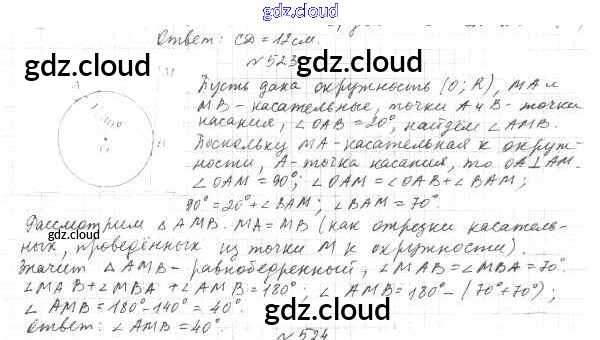 gdz.cloud
Ответ: CD = 12 см.
№ 523
gdz.cloud
gdz.cloud
Пусть дана окружность (O; R), MA и
MB - касательные, точки A и B - точки
касания, ∠OAB = 20°, найдём ∠AMB.
Поскольку MA - касательная к окруж-
ности, A - точка касания, то OA⊥AM.
∠OAM = 90°; ∠OAM = ∠OAB + ∠BAM;
90° = 20° + ∠BAM; ∠BAM = 70°.
gdz.cloud
Рассмотрим △AMB. MA = MB (как отрезки касатель-
ных, проведённых из точки M к окружности).
gdz.cloud
gdz.cloud
Значит △AMB - равнобедренный, ∠MAB = ∠MBA = 70°.
∠MAB + ∠MBA + ∠AMB = 180°; ∠AMB = 180° - (70° + 70°);
∠AMB = 180° - 140° = 40°.
gdz.cloud
Ответ: ∠AMB = 40°.
№ 524
gdz.cloud